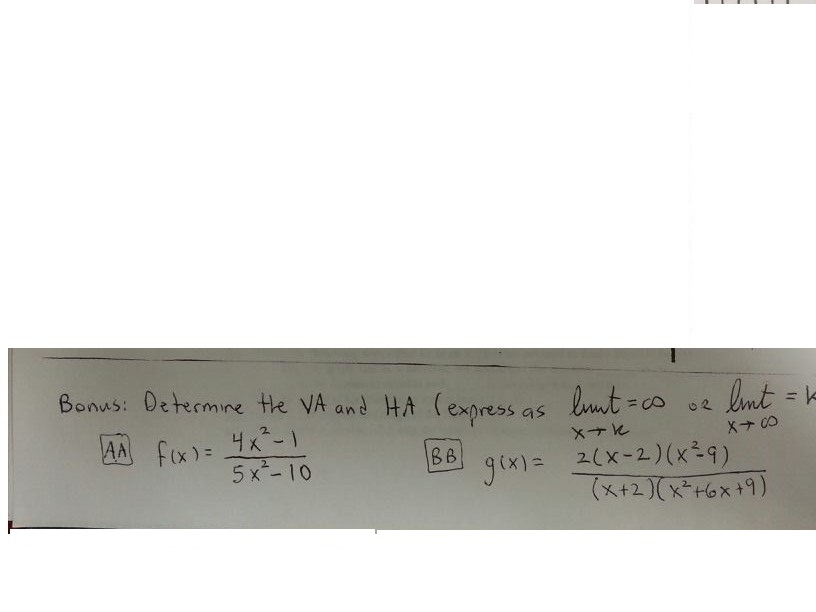 Bonus: Determine the VA and HA (express as limit = ∞ or limit = k
x→k x→∞
AA f(x) = (4x²-1)/(5x²-10)
BB g(x) = 2(x-2)(x²-9)/((x+2)(x²+6x+9))